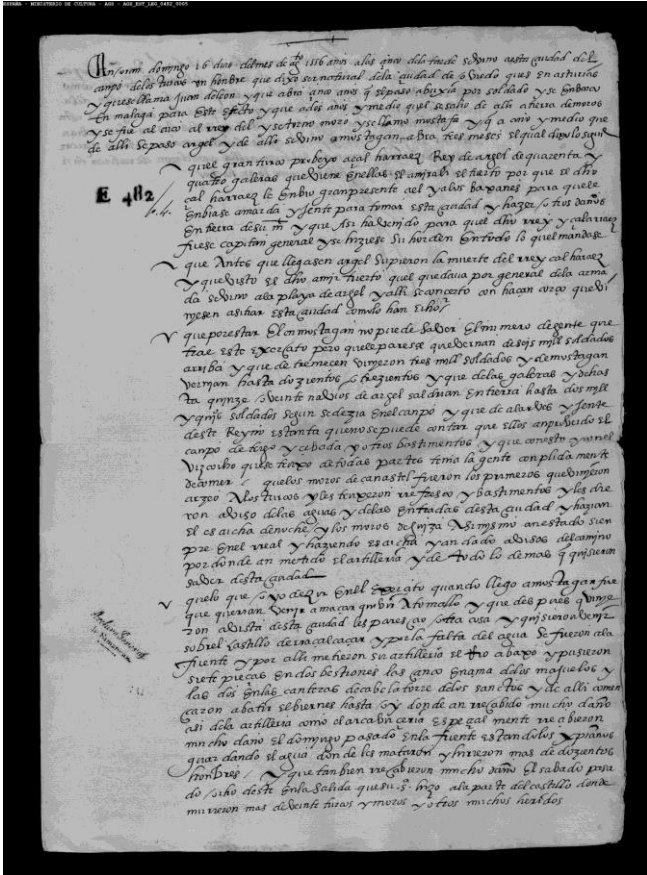 ESPAÑA - MINISTERIO DE CULTURA - AGS - AGS_EST_LEG_0482_0005
En oran domingo 16 dias del mes de ag.to 1556 años a los cinco dela tarde se vino a esta ciudad del
campo delos turcos un honbre que dixo ser natural dela ciudad de oviedo ques en asturias
y que se llama Juan de leon y que abra cinco años q el paso a buxia por soldado y se enbarco
En malaga para este efecto y que a dos años y medio quel se salio de alli a tierra de moros
y se fue al cuco al rrey del y se torno moro y se llamo mostafa y q a año y medio que
de alli se paso argel y de alli se vino a mostagan abra tres meses el qual dixo lo sigui
quel gran turco proveyo a cal harraez Rey de argel de quarenta y
quatro galeras que viene en ellas el amirali el tuerto por que el dho
cal harraez le enbio gran presente a el y a los baxanes para que le
enbiase armada y Jente para tomar esta ciudad y hazer otros daños
En tierra de su m y que Asi ha venido para quel dho rrey y cal arraez
fuese capitan general y se hiziese su horden En todo lo quel mandase
E 482
que Antes que llegasen argel supieron la muerte del rrey cal haraez
y que visto el dho amir tuerto quel quedava por general dela arma
da se vino ala playa de argel y alli se concerto con haçan corço que vi
niesen a sitiar esta ciudad como lo han echo
que por estar El en mostagan no puede saver El numero de gente que
trae este exercito pero que le paresse que vernan de seis mill soldados
arriba y que de tremecen vinieron tres mill soldados y de mostagan
vernian hasta dozientos o trezientos y que delas galeras y de has
ta quinze o veinte navios de argel saldrian En tierra hasta dos mill
y quis soldados segun se dezia En el canpo y que de alarves y Jente
deste Reyno es tanta que no se puede contar que ellos an proveido El
canpo de trigo y cebada y otros bastimentos y que con esto y con el
vizcocho que se traxo de todas partes tenia la gente conplida mente
de comer / que los moros de canastel fueron los primeros que vinieron
arzeo A los turcos y les traxeron rrefresco y bastimentos y les die
ron aviso delas aguas y delas Entradas desta ciudad y hazian
el escucha de noche y los moros de guiza Asi mismo an estado sien
pre En el rreal y haziendo escucha y an dado avisos del camino
por donde an metido el artilleria y de todo lo demas q quisieron
saver desta ciudad
quelo que oyo dezir En el Exercito quando llego a mostagan fue
que querrian venir a maçar quivir A tomallo y que despues q vinie
ron a vista desta ciudad les parescio otra cosa y quisieron venir
sobrel castillo de rraçalcaçar y por la falta del agua se fueron ala
fuente y por alli metieron su artilleria el Rio abaxo y pusieron
siete pieças En dos bestiones las cinco En cima delos majuelos y
las dos En las canteras de cabe la torre delos sanctos y de alli comen
çaron a batir el biernes hasta oy donde an rrecebido mucho daño
asi dela artilleria como el arcabuzeria espeçial mente rrecebieron
mucho daño el domingo pasado En la fuente estandolos xpianos
guardando el agua donde les mataron y hirieron mas de dozientos
honbres / y que tanbien rrecebieron mucho daño El sabado pasa
do ocho deste En la salida que su s. hizo ala parte del castillo donde
murieron mas de veinte turcos y moros y otros muchos heridos
Archivo General
de Simancas